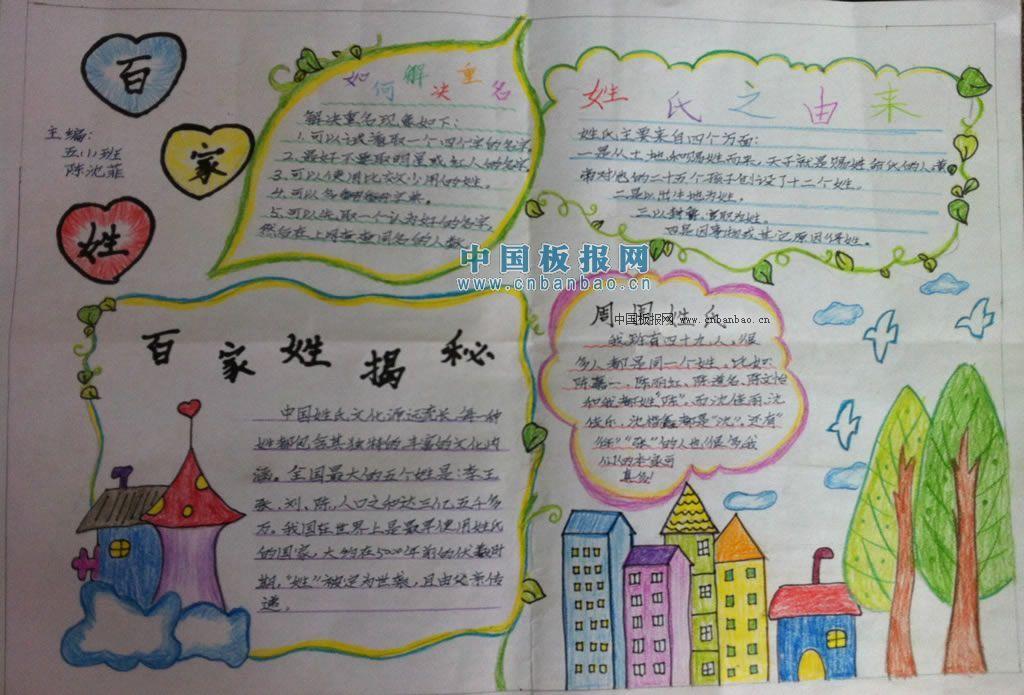 百
家
姓
主编:
五(1)班
陈沈菲
如何解决重名
解决重名现象如下:
1.可以试着取一个四个字的名字
2.最好不要取明星或红人的名字
3.可以使用比较少用的姓。
4.可以多
5.可以先取一个认为好的名字
然后在上网查查同名的人数
姓氏之由来
姓氏主要来自四个方面:
一是从土地和赐姓而来,天子就是赐姓命氏的人,黄
帝对他的二十五个孩子创设了十二个姓。
二是以出生地为姓。
三以 官职为姓。
四是因事物或其它原因得姓。
中国板报网
www.cnbanbao.cn
百家姓揭秘
中国姓氏文化源远流长,每一种
姓都包含其独特的丰富的文化内
涵。全国最大的五个姓是:李、王、
张、刘、陈,人口之和达三亿五千多
万。我国在世界上是最早使用姓氏
的国家,大约在5000年前的伏羲时
期,“姓”被定为世袭,且由父亲传
递。
周围姓氏
中国板报网 www.cnbanbao.cn
我 有四十九人,很
多人都是同一个姓。比如
陈嘉一、陈丽虹、陈 名、陈文怡
和我都姓“陈”。而沈佳雨、沈
佳乐、沈楷鑫都是“沈”。还有
“ ”“张”的人也很多我
们 的